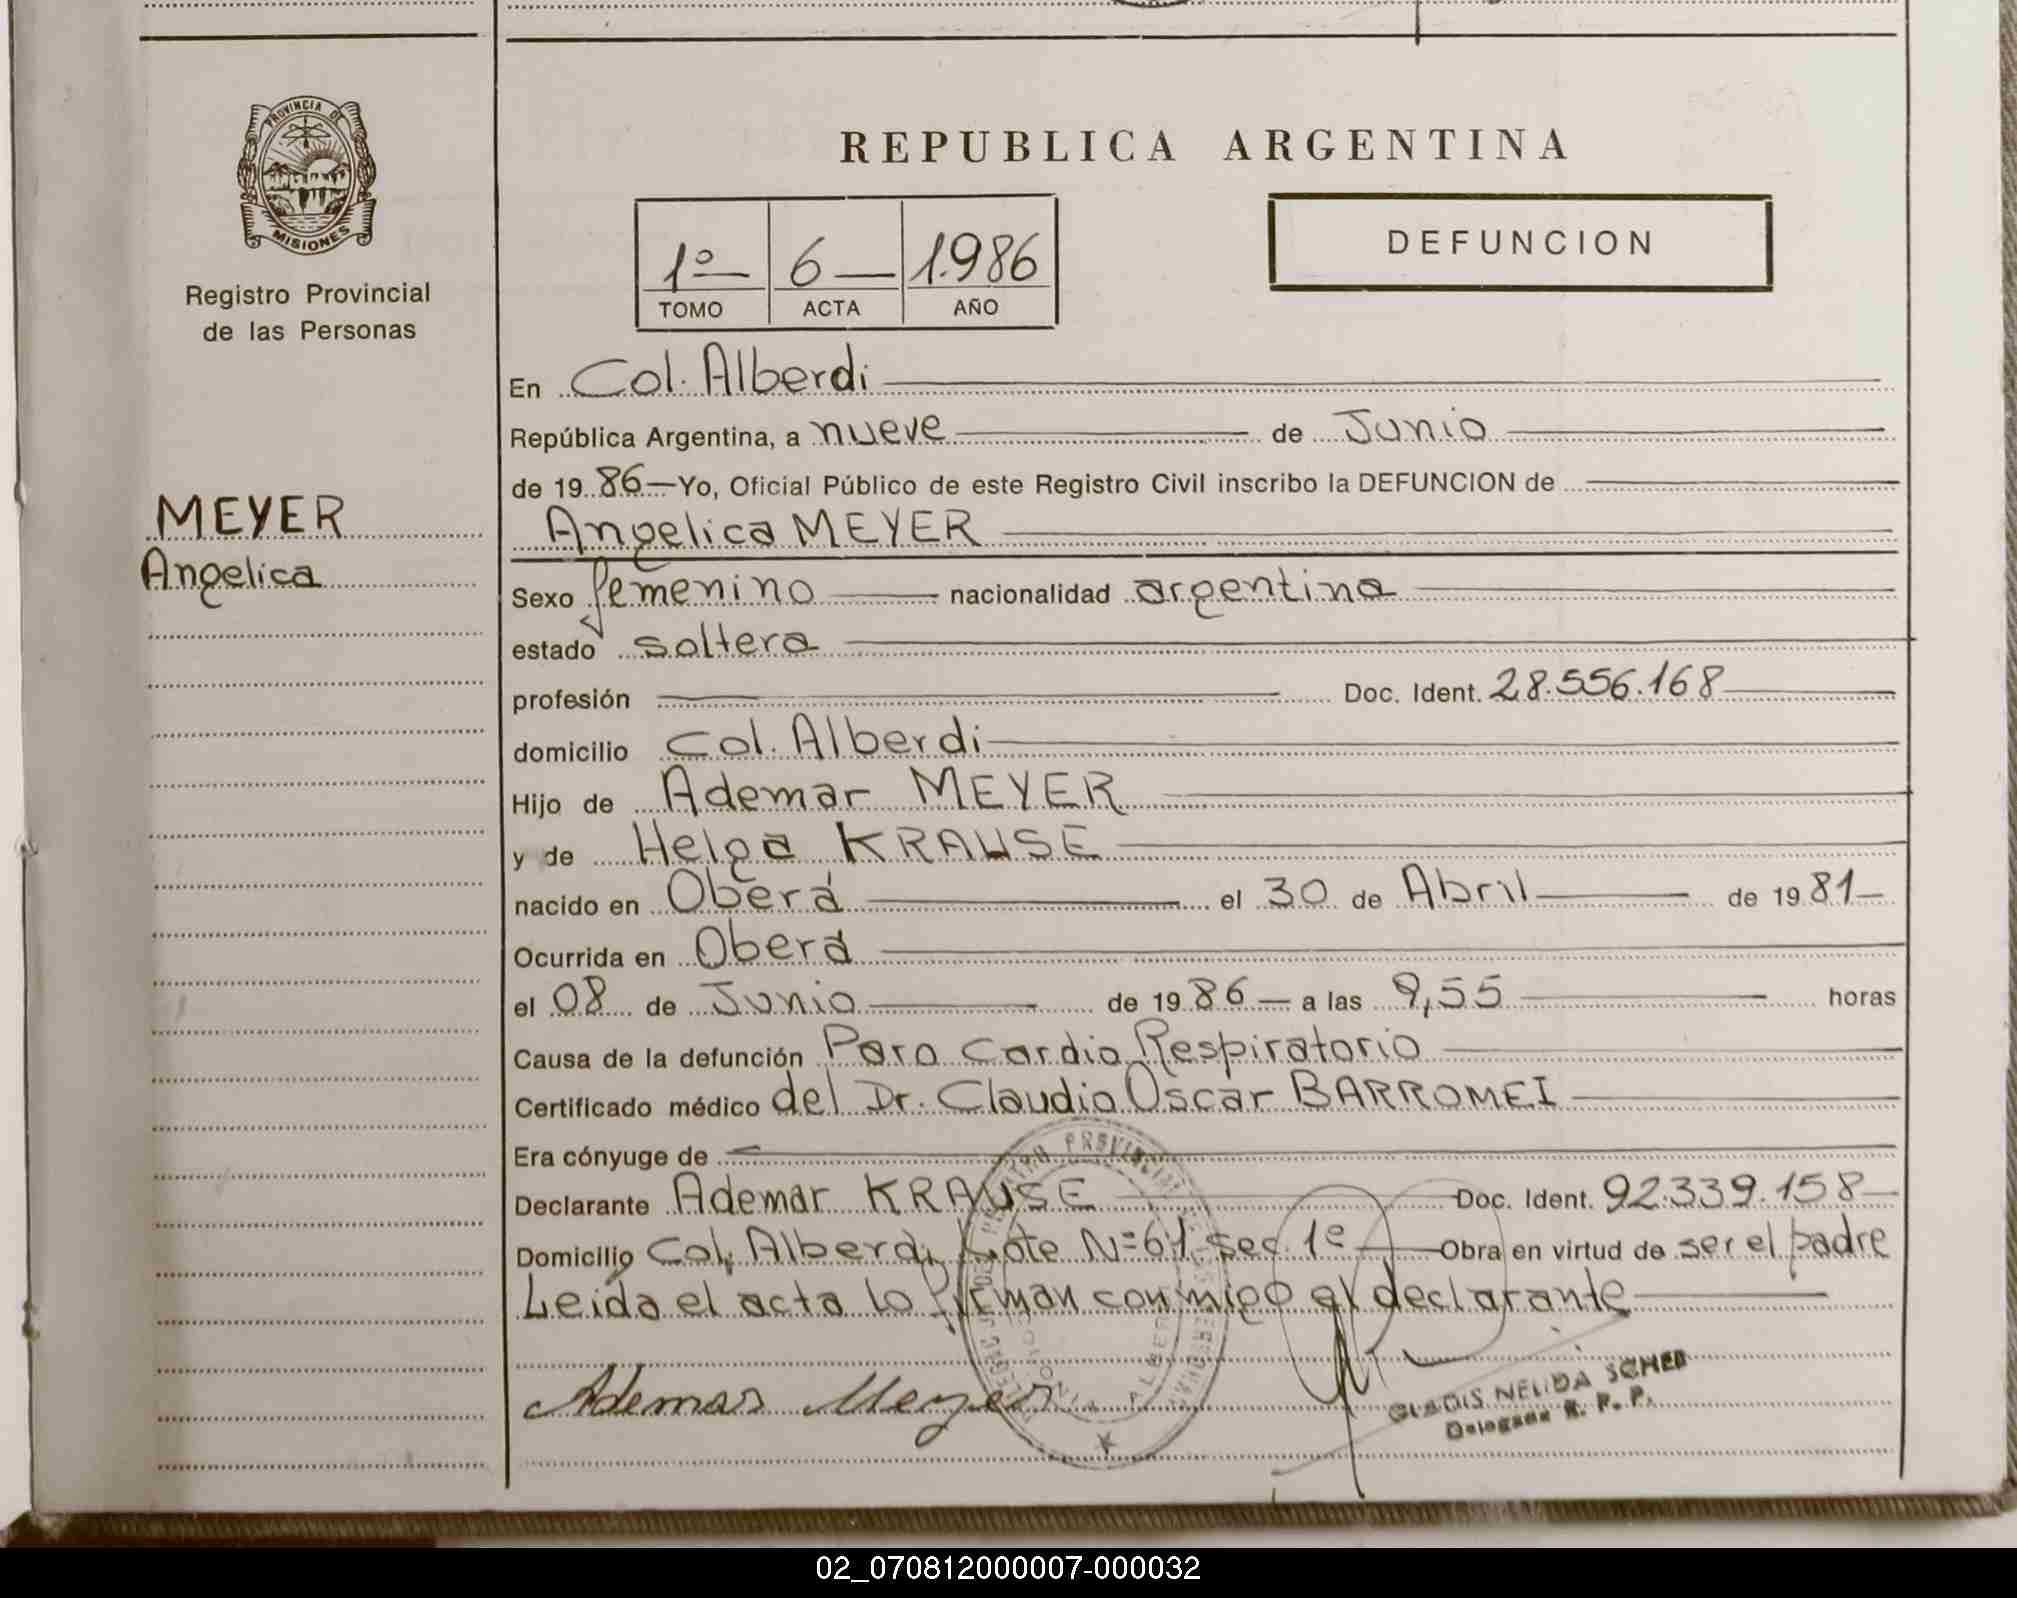 PROVINCIA DE
MISIONES
Registro Provincial
de las Personas
MEYER
Angelica
REPUBLICA ARGENTINA
1º 6 1.986
TOMO ACTA AÑO
DEFUNCION
En Col. Alberdi
República Argentina, a nueve de Junio
de 19 86 Yo, Oficial Público de este Registro Civil inscribo la DEFUNCION de
Angelica MEYER
Sexo femenino nacionalidad argentina
estado soltera
profesión Doc. Ident. 28.556.168
domicilio Col. Alberdi
Hijo de Ademar MEYER
y de Helga KRAUSE
nacido en Oberá el 30 de Abril de 19 81
Ocurrida en Oberá
el 08 de Junio de 19 86 a las 9,55 horas
Causa de la defunción Paro Cardio Respiratorio
Certificado médico del Dr. Claudio Oscar BARROMEI
Era cónyuge de
Declarante Ademar KRAUSE Doc. Ident. 92.339.158
Domicilio Col. Alberdi Lote Nº 61 Sec. 1º Obra en virtud de ser el padre
Leída el acta lo firman conmigo el declarante
Ademar Meyer
GLADIS NELIDA SCHED
Delegada R. P. P.
02_070812000007-000032